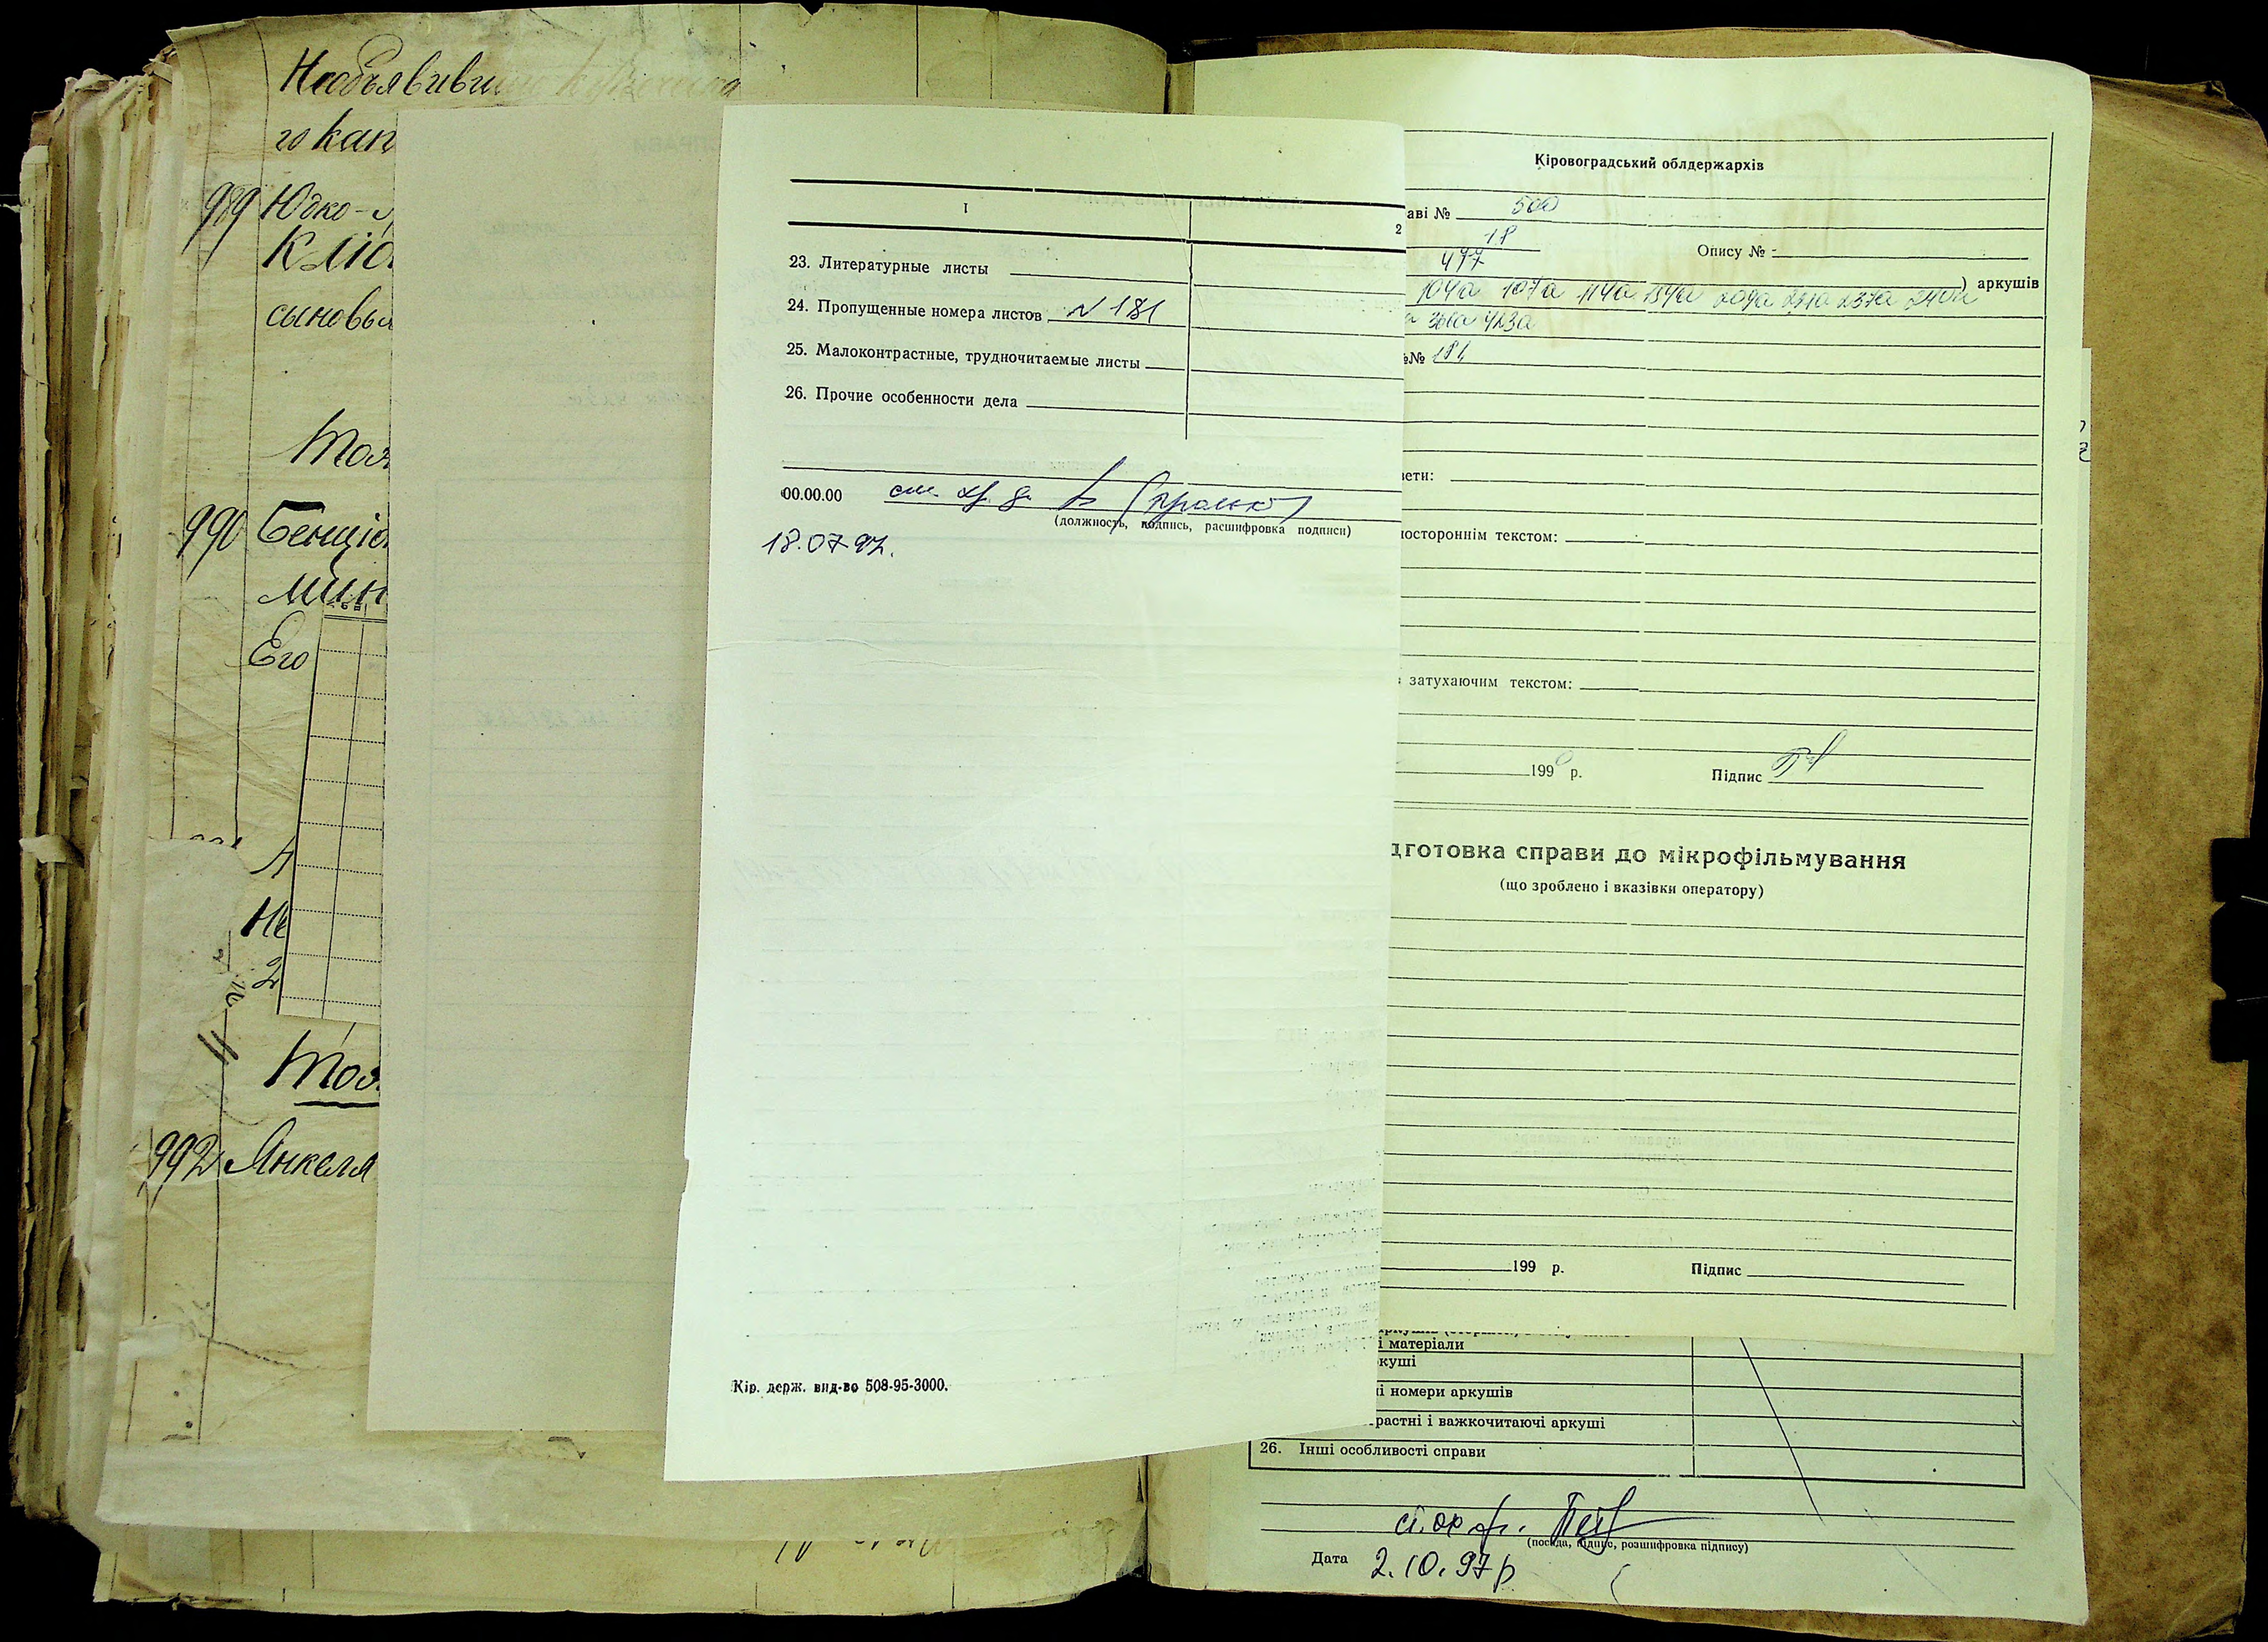 Необъявивши
го кап
989 Юдко-
Клю
сыновья
990 Бенціо
мин
Его
Не
2
992 Янкеля
I
2
23. Литературные листы
24. Пропущенные номера листов N 181
25. Малоконтрастные, трудночитаемые листы
26. Прочие особенности дела
00.00.00
(должность, подпись, расшифровка подписи)
18.07.97.
Кір. держ. вид-во 508-95-3000.
Кіровоградський облдержархів
аві № 500
18
Опису № -
497
) аркушів
104а 107а 114а 154а 209а 237а
423а
№ 181
ети:
ностороннім текстом:
затухаючим текстом:
199 р.
Підпис
дготовка справи до мікрофільмування
(що зроблено і вказівки оператору)
199 р.
Підпис
і матеріали
куші
і номери аркушів
растні і важкочитаючі аркуші
26. Інші особливості справи
(посада, підпис, розшифровка підпису)
Дата 2.10.97р